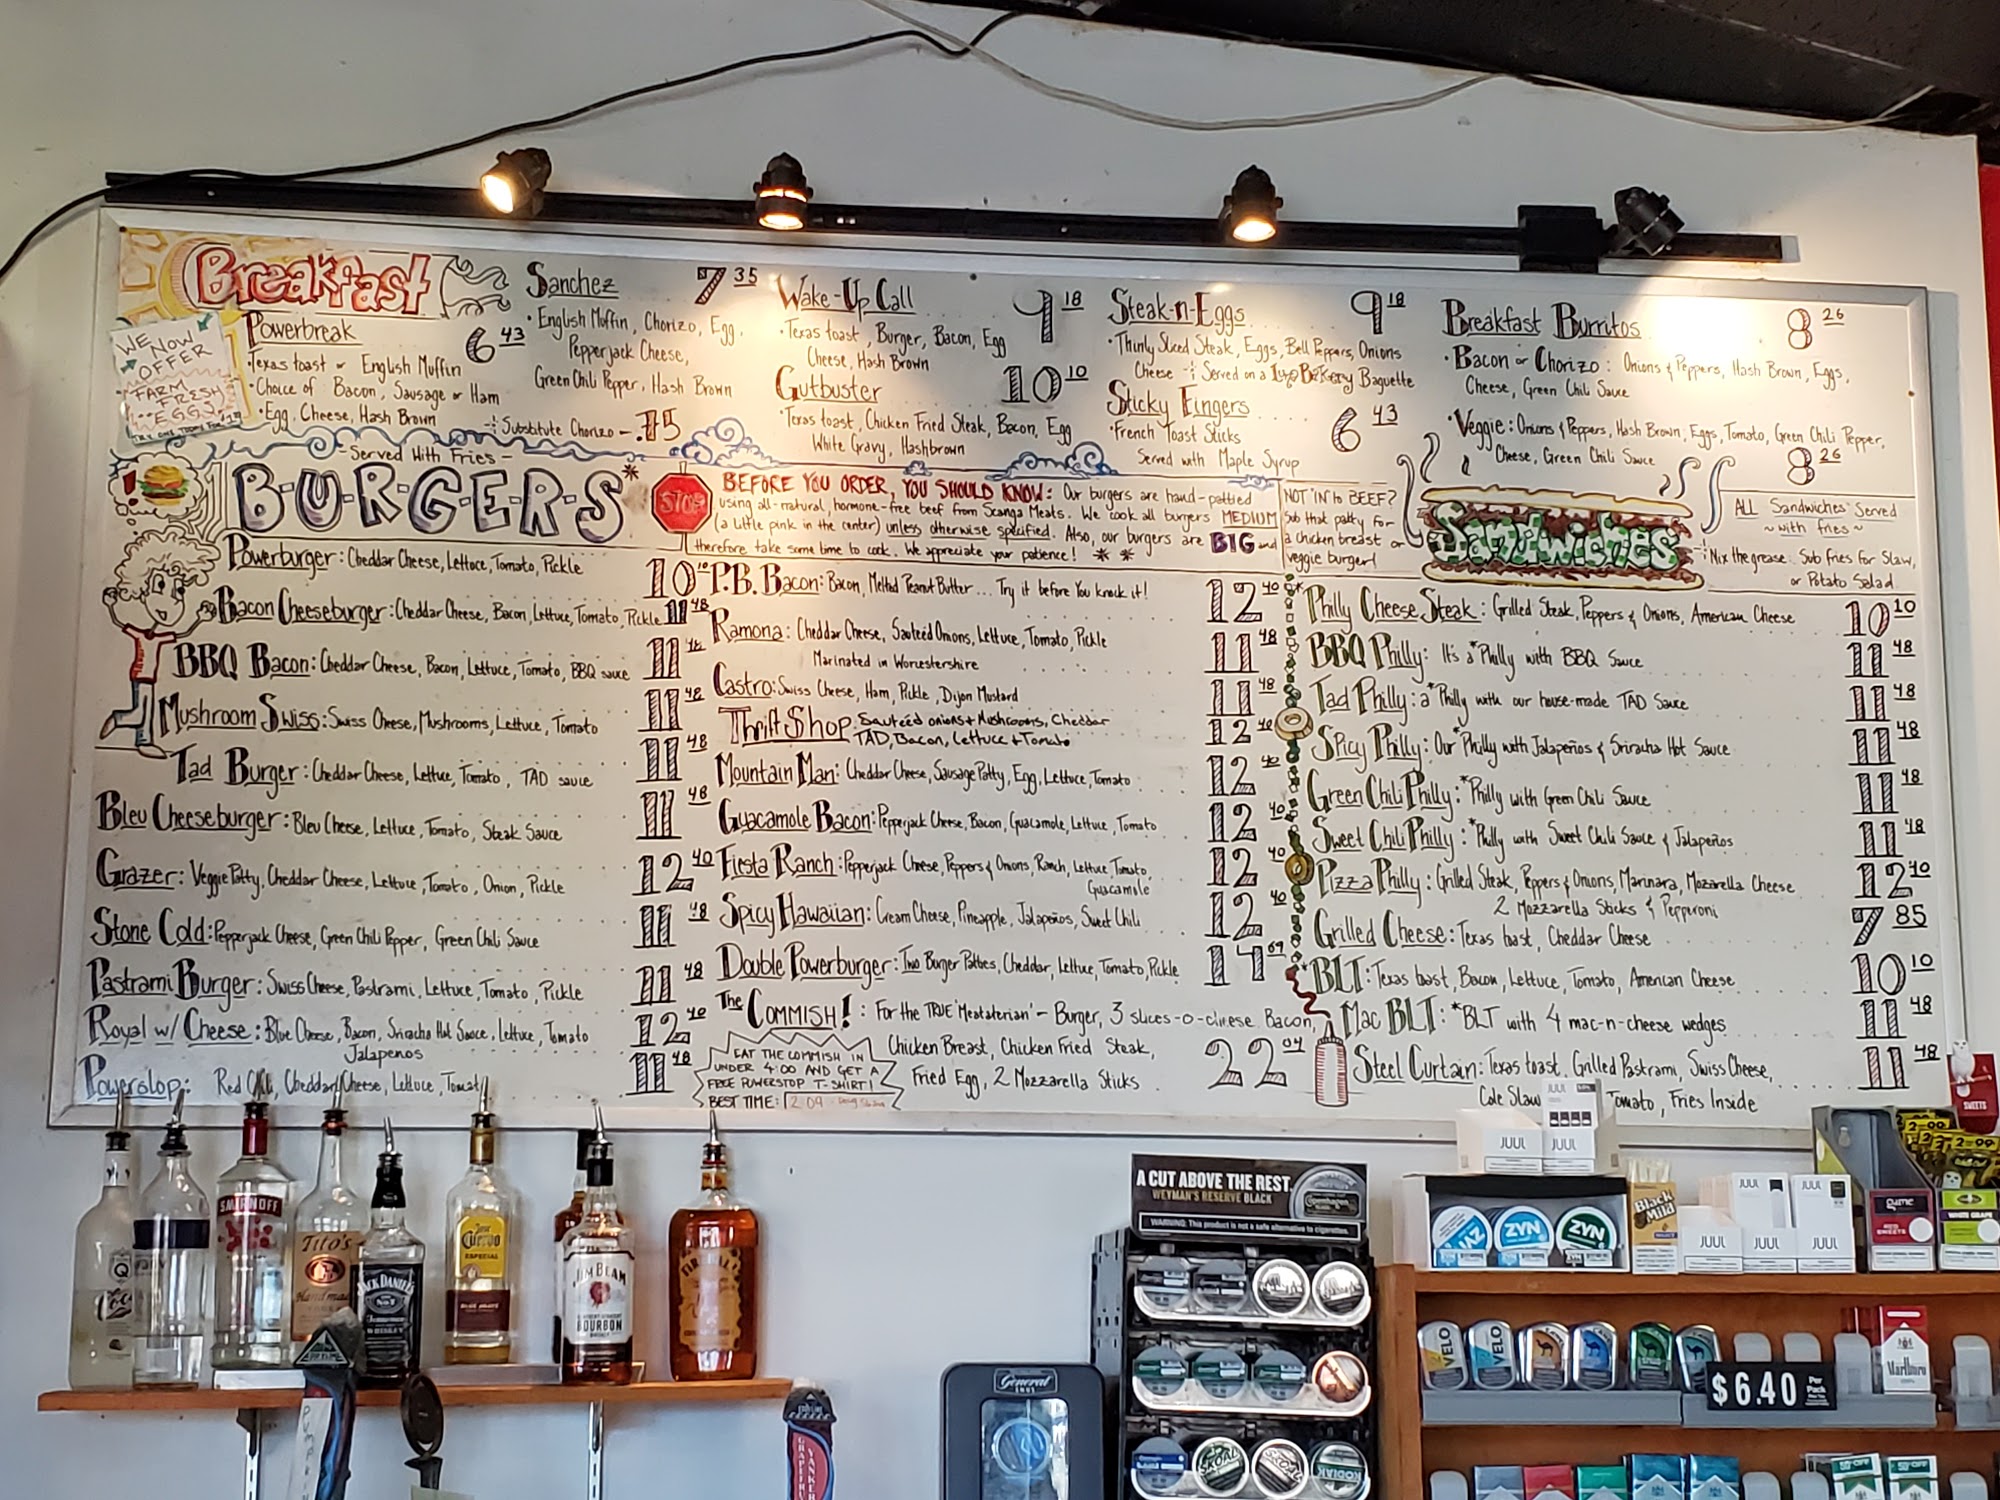 Breakfast
WE NOW OFFER
FARM FRESH EGGS
Powerbreak 6 43
·Texas toast or English Muffin
·Choice of Bacon, Sausage or Ham
·Egg, Cheese, Hash Brown
Substitute Chorizo - .75
Sanchez $7 35
·English Muffin, Chorizo, Egg,
Pepperjack Cheese,
Green Chili Pepper, Hash Brown
Wake-Up Call 9 18
·Texas toast, Burger, Bacon, Egg
Cheese, Hash Brown
Gutbuster 10 10
·Texas toast, Chicken Fried Steak, Bacon, Egg
White Gravy, Hashbrown
Steak-n-Eggs 9 18
·Thinly Sliced Steak, Eggs, Bell Peppers, Onions
Cheese Served on a Baguette
Sticky Fingers 6 43
·French Toast Sticks
Served with Maple Syrup
Breakfast Burritos 8 26
·Bacon or Chorizo: Onions & Peppers, Hash Brown, Eggs,
Cheese, Green Chili Sauce
·Veggie: Onions & Peppers, Hash Brown, Eggs, Tomato, Green Chili Pepper,
Cheese, Green Chili Sauce 8 26
-Served With Fries-
B·U·R·G·E·R·S*
STOP
BEFORE YOU ORDER, YOU SHOULD KNOW: Our burgers are hand-pattied
using all-natural, hormone-free beef from Scanga Meats. We cook all burgers MEDIUM
(a little pink in the center) unless otherwise specified. Also, our burgers are BIG and
therefore take some time to cook. We appreciate your patience! * *
NOT INTO BEEF?
Sub that patty for
a chicken breast or
veggie burger!
Powerburger: Cheddar Cheese, Lettuce, Tomato, Pickle 10 10
Bacon Cheeseburger: Cheddar Cheese, Bacon, Lettuce, Tomato, Pickle 11 48
BBQ Bacon: Cheddar Cheese, Bacon, Lettuce, Tomato, BBQ sauce 11 48
Mushroom Swiss: Swiss Cheese, Mushrooms, Lettuce, Tomato 11 48
Tad Burger: Cheddar Cheese, Lettuce, Tomato, TAD sauce 11 48
Bleu Cheeseburger: Bleu Cheese, Lettuce, Tomato, Steak Sauce 11 48
Grazer: Veggie Patty, Cheddar Cheese, Lettuce, Tomato, Onion, Pickle 12 40
Stone Cold: Pepperjack Cheese, Green Chili Pepper, Green Chili Sauce 11 48
Pastrami Burger: Swiss Cheese, Pastrami, Lettuce, Tomato, Pickle 11 48
Royal w/ Cheese: Blue Cheese, Bacon, Sriracha Hot Sauce, Lettuce, Tomato 12 40
Jalapenos
Powerslop: Red Chili, Cheddar Cheese, Lettuce, Tomato 11 48
P.B. Bacon: Bacon, Melted Peanut Butter ... Try it before You knock it! 12 40
Ramona: Cheddar Cheese, Sauteéd Onions, Lettuce, Tomato, Pickle 11 48
Marinated in Worcestershire
Castro: Swiss Cheese, Ham, Pickle, Dijon Mustard 11 48
Thrift Shop Sauteéd onions + Mushrooms, Cheddar 12 40
TAD, Bacon, Lettuce + Tomato
Mountain Man: Cheddar Cheese, Sausage Patty, Egg, Lettuce, Tomato 12 40
Guacamole Bacon: Pepperjack Cheese, Bacon, Guacamole, Lettuce, Tomato 12 40
Fiesta Ranch: Pepperjack Cheese, Peppers & Onions, Ranch, Lettuce, Tomato, 12 40
Guacamole
Spicy Hawaiian: Cream Cheese, Pineapple, Jalapeños, Sweet Chili 12 40
Double Powerburger: Two Burger Patties, Cheddar, Lettuce, Tomato, Pickle 14 69
The COMMISH!: For the TRUE 'Meatatarian' - Burger, 3 slices-o-cheese Bacon,
Chicken Breast, Chicken Fried Steak,
Fried Egg, 2 Mozzarella Sticks 22 04
EAT THE COMMISH IN
UNDER 4:00 AND GET A
FREE POWERSTOP T-SHIRT!
BEST TIME: 2:09
Sandwiches
ALL Sandwiches Served
~with fries~
Nix the grease. Sub fries for Slaw,
or Potato Salad
*Philly Cheese Steak: Grilled Steak, Peppers & Onions, American Cheese 10 10
BBQ Philly: It's a *Philly with BBQ Sauce 11 48
Tad Philly: a *Philly with our house-made TAD Sauce 11 48
Spicy Philly: Our *Philly with Jalapeños & Sriracha Hot Sauce 11 48
Green Chili Philly: *Philly with Green Chili Sauce 11 48
Sweet Chili Philly: *Philly with Sweet Chili Sauce & Jalapeños 11 48
Pizza Philly: Grilled Steak, Peppers & Onions, Marinara, Mozarella Cheese 12 40
2 Mozzarella Sticks & Pepperoni
Grilled Cheese: Texas toast, Cheddar Cheese 7 85
*BLT: Texas toast, Bacon, Lettuce, Tomato, American Cheese 10 10
Mac BLT: *BLT with 4 mac-n-cheese wedges 11 48
Steel Curtain: Texas toast, Grilled Pastrami, Swiss Cheese, 11 48
Cole Slaw Tomato, Fries Inside
SMIRNOFF
Tito's
Handmade
JACK DANIEL'S
Jose Cuervo
ESPECIAL
JIM BEAM
BOURBON
FIREBALL
General
A CUT ABOVE THE REST.
WEYMAN'S RESERVE BLACK
WARNING: This product is not a safe alternative to cigarettes.
Copenhagen
SKOAL
KODIAK
JUUL
JUUL
JUUL
JUUL
JUUL
JUUL
ZYN
ZYN
Black & Mild
VELO
VELO
CAMEL
$6.40 Per Pack
Marlboro
game
RED SWEETS
WHITE GRAPE
SWEETS
2 FOR 99¢